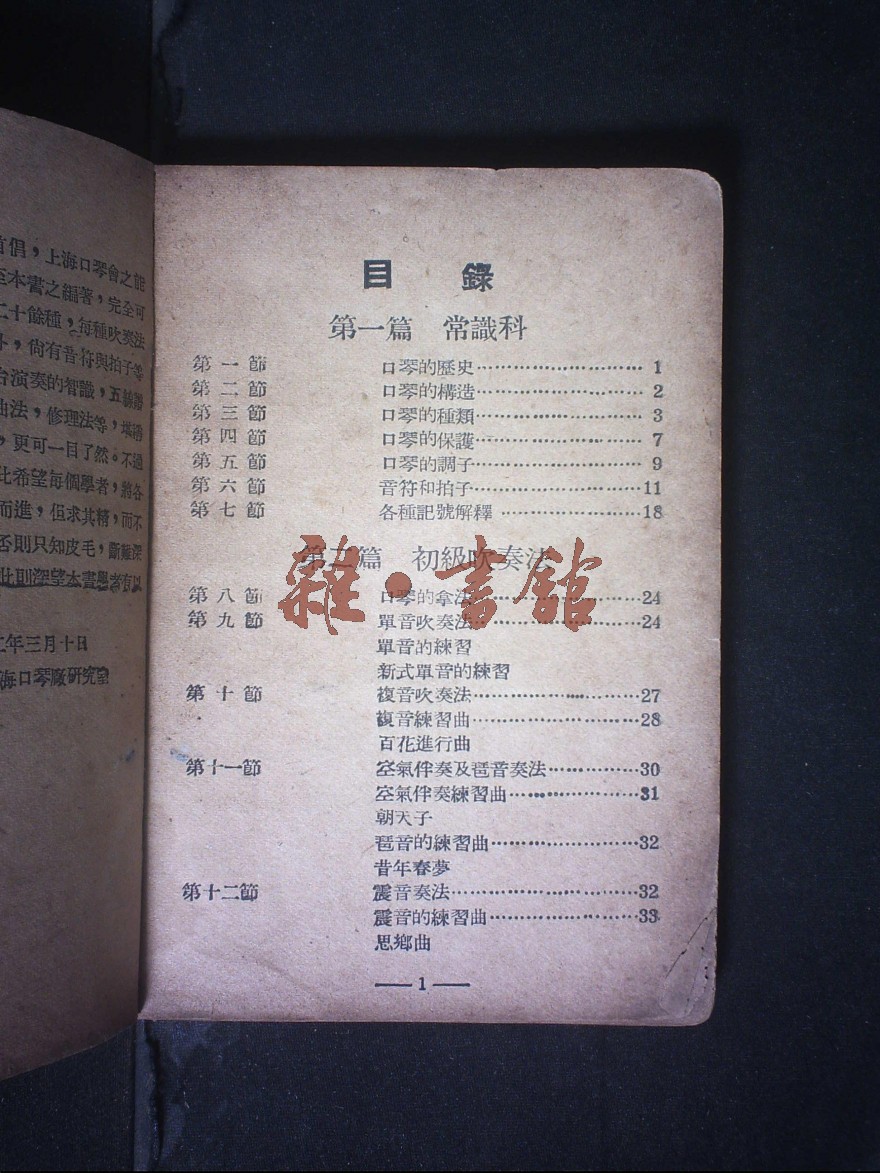 首倡，上海口琴會之能
至本書之編著，完全可
二十餘種，每種吹奏法
外，尙有音符與拍子等
台演奏的智識，五線譜
曲法，修理法等，
，更可一目了然。不過
此希望每個學者，將各
而進，但求其精，而不
否則只知皮毛，斷難深
此則深望本書學者有以
年三月十日
海口琴廠硏究室
目　錄
第一篇　常識科
第一節　口琴的歷史………………………1
第二節　口琴的構造………………………2
第三節　口琴的種類………………………3
第四節　口琴的保護………………………7
第五節　口琴的調子………………………9
第六節　音符和拍子………………………11
第七節　各種記號解釋……………………18
第二篇　初級吹奏法
第八節　口琴的拿法………………………24
第九節　單音吹奏法………………………24
單音的練習
新式單音的練習
第十節　複音吹奏法………………………27
複音練習曲………………………28
百花進行曲
第十一節　空氣伴奏及琶音奏法……………30
空氣伴奏練習曲…………………31
朝天子
琶音的練習曲……………………32
昔年春夢
第十二節　震音奏法…………………………32
震音的練習曲……………………33
思鄉曲
—— 1 ——
雜·書館